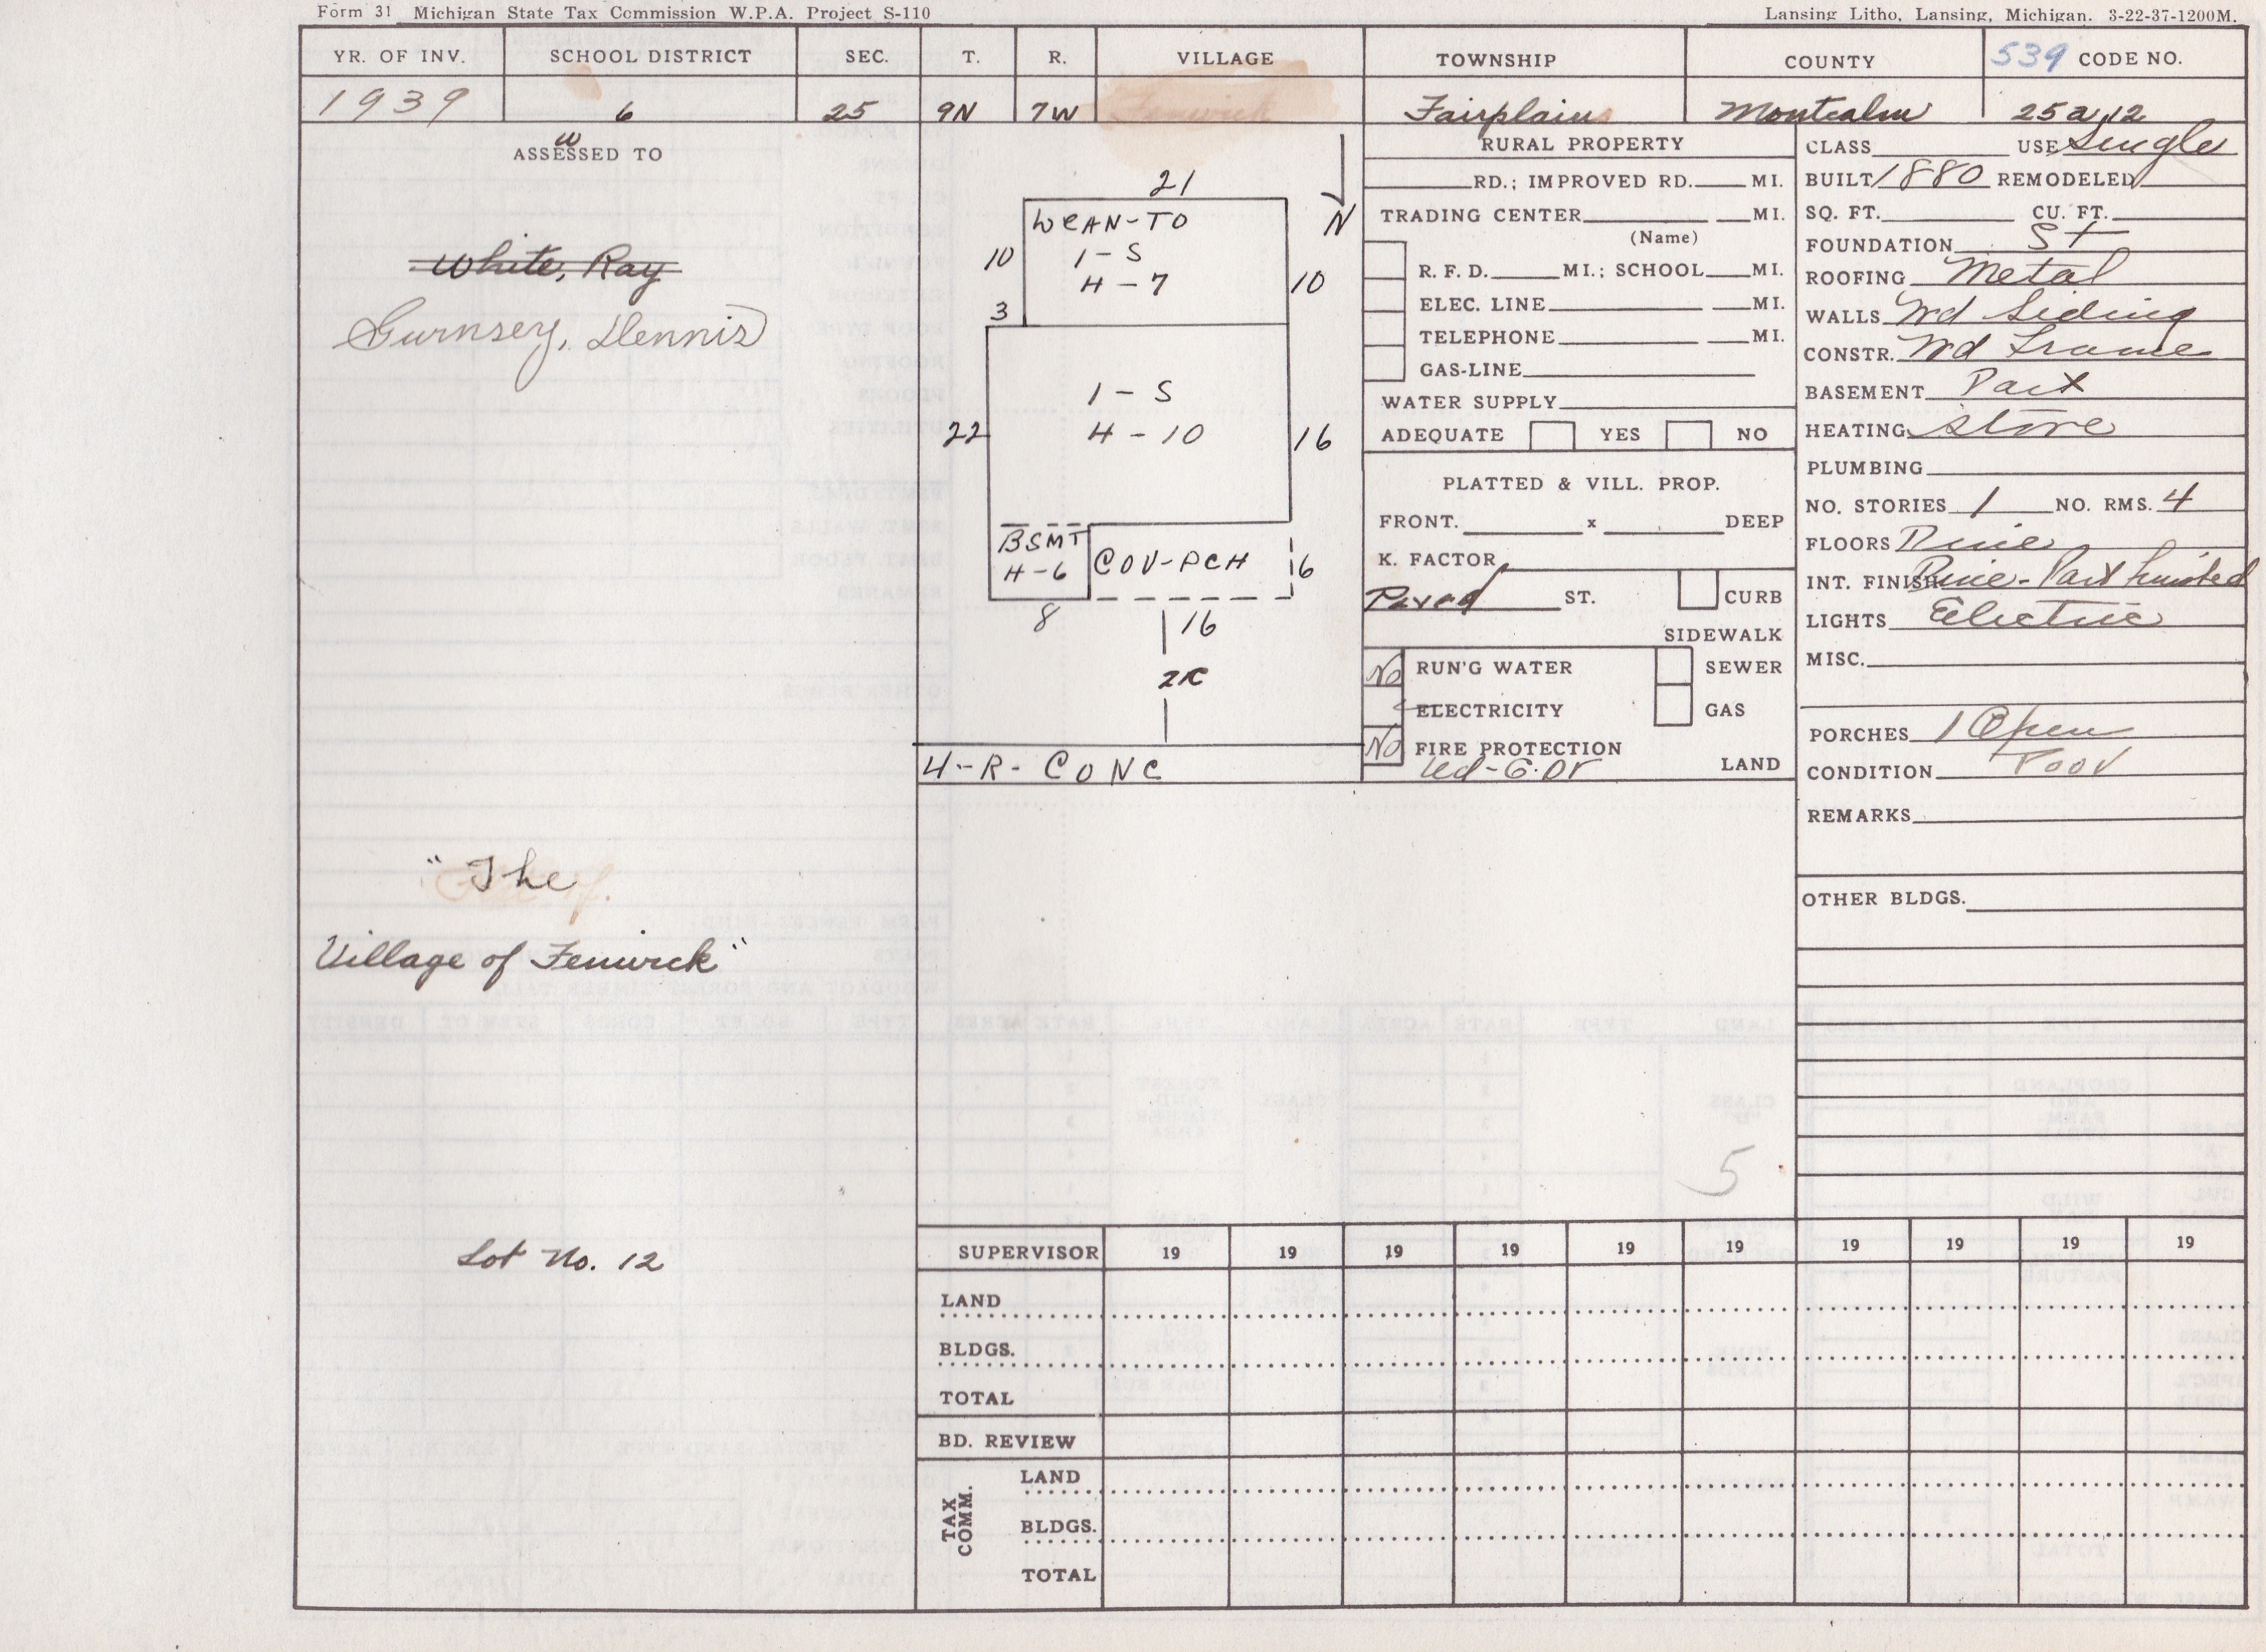 Form 31 Michigan State Tax Commission W.P.A. Project S-110
Lansing Litho, Lansing, Michigan. 3-22-37-1200M.
YR. OF INV. SCHOOL DISTRICT SEC. T. R. VILLAGE TOWNSHIP COUNTY 539 CODE NO.
1939 6 25 9N 7W Fenwick Fairplains Montcalm 25 a 12
W
ASSESSED TO
White, Ray
Gurnsey, Dennis
"The
Village of Fenwick"
Lot No. 12
21
LEAN-TO
1-S
4-7
10
10
N
3
1-S
4-10
22
16
BSMT
H-6
COV-PCH
6
8
16
2R
4-R-CONC
RURAL PROPERTY
RD.; IMPROVED RD. MI.
TRADING CENTER MI.
(Name)
R. F. D. MI.; SCHOOL MI.
ELEC. LINE MI.
TELEPHONE MI.
GAS-LINE
WATER SUPPLY
ADEQUATE YES NO
PLATTED & VILL. PROP.
FRONT. x DEEP
K. FACTOR
Paved ST. CURB
SIDEWALK
No RUN'G WATER SEWER
ELECTRICITY GAS
No FIRE PROTECTION
LAND
CLASS USE Single
BUILT 1880 REMODELED
SQ. FT. CU. FT.
FOUNDATION St
ROOFING Metal
WALLS Wd Siding
CONSTR. Wd Frame
BASEMENT Part
HEATING Stove
PLUMBING
NO. STORIES 1 NO. RMS. 4
FLOORS Pine
INT. FINISH Pine-Part finished
LIGHTS Electric
MISC.
PORCHES 1 Open
CONDITION Poor
REMARKS
OTHER BLDGS.
5
SUPERVISOR 19 19 19 19 19 19 19 19 19 19
LAND
BLDGS.
TOTAL
BD. REVIEW
TAX COMM.
LAND
BLDGS.
TOTAL